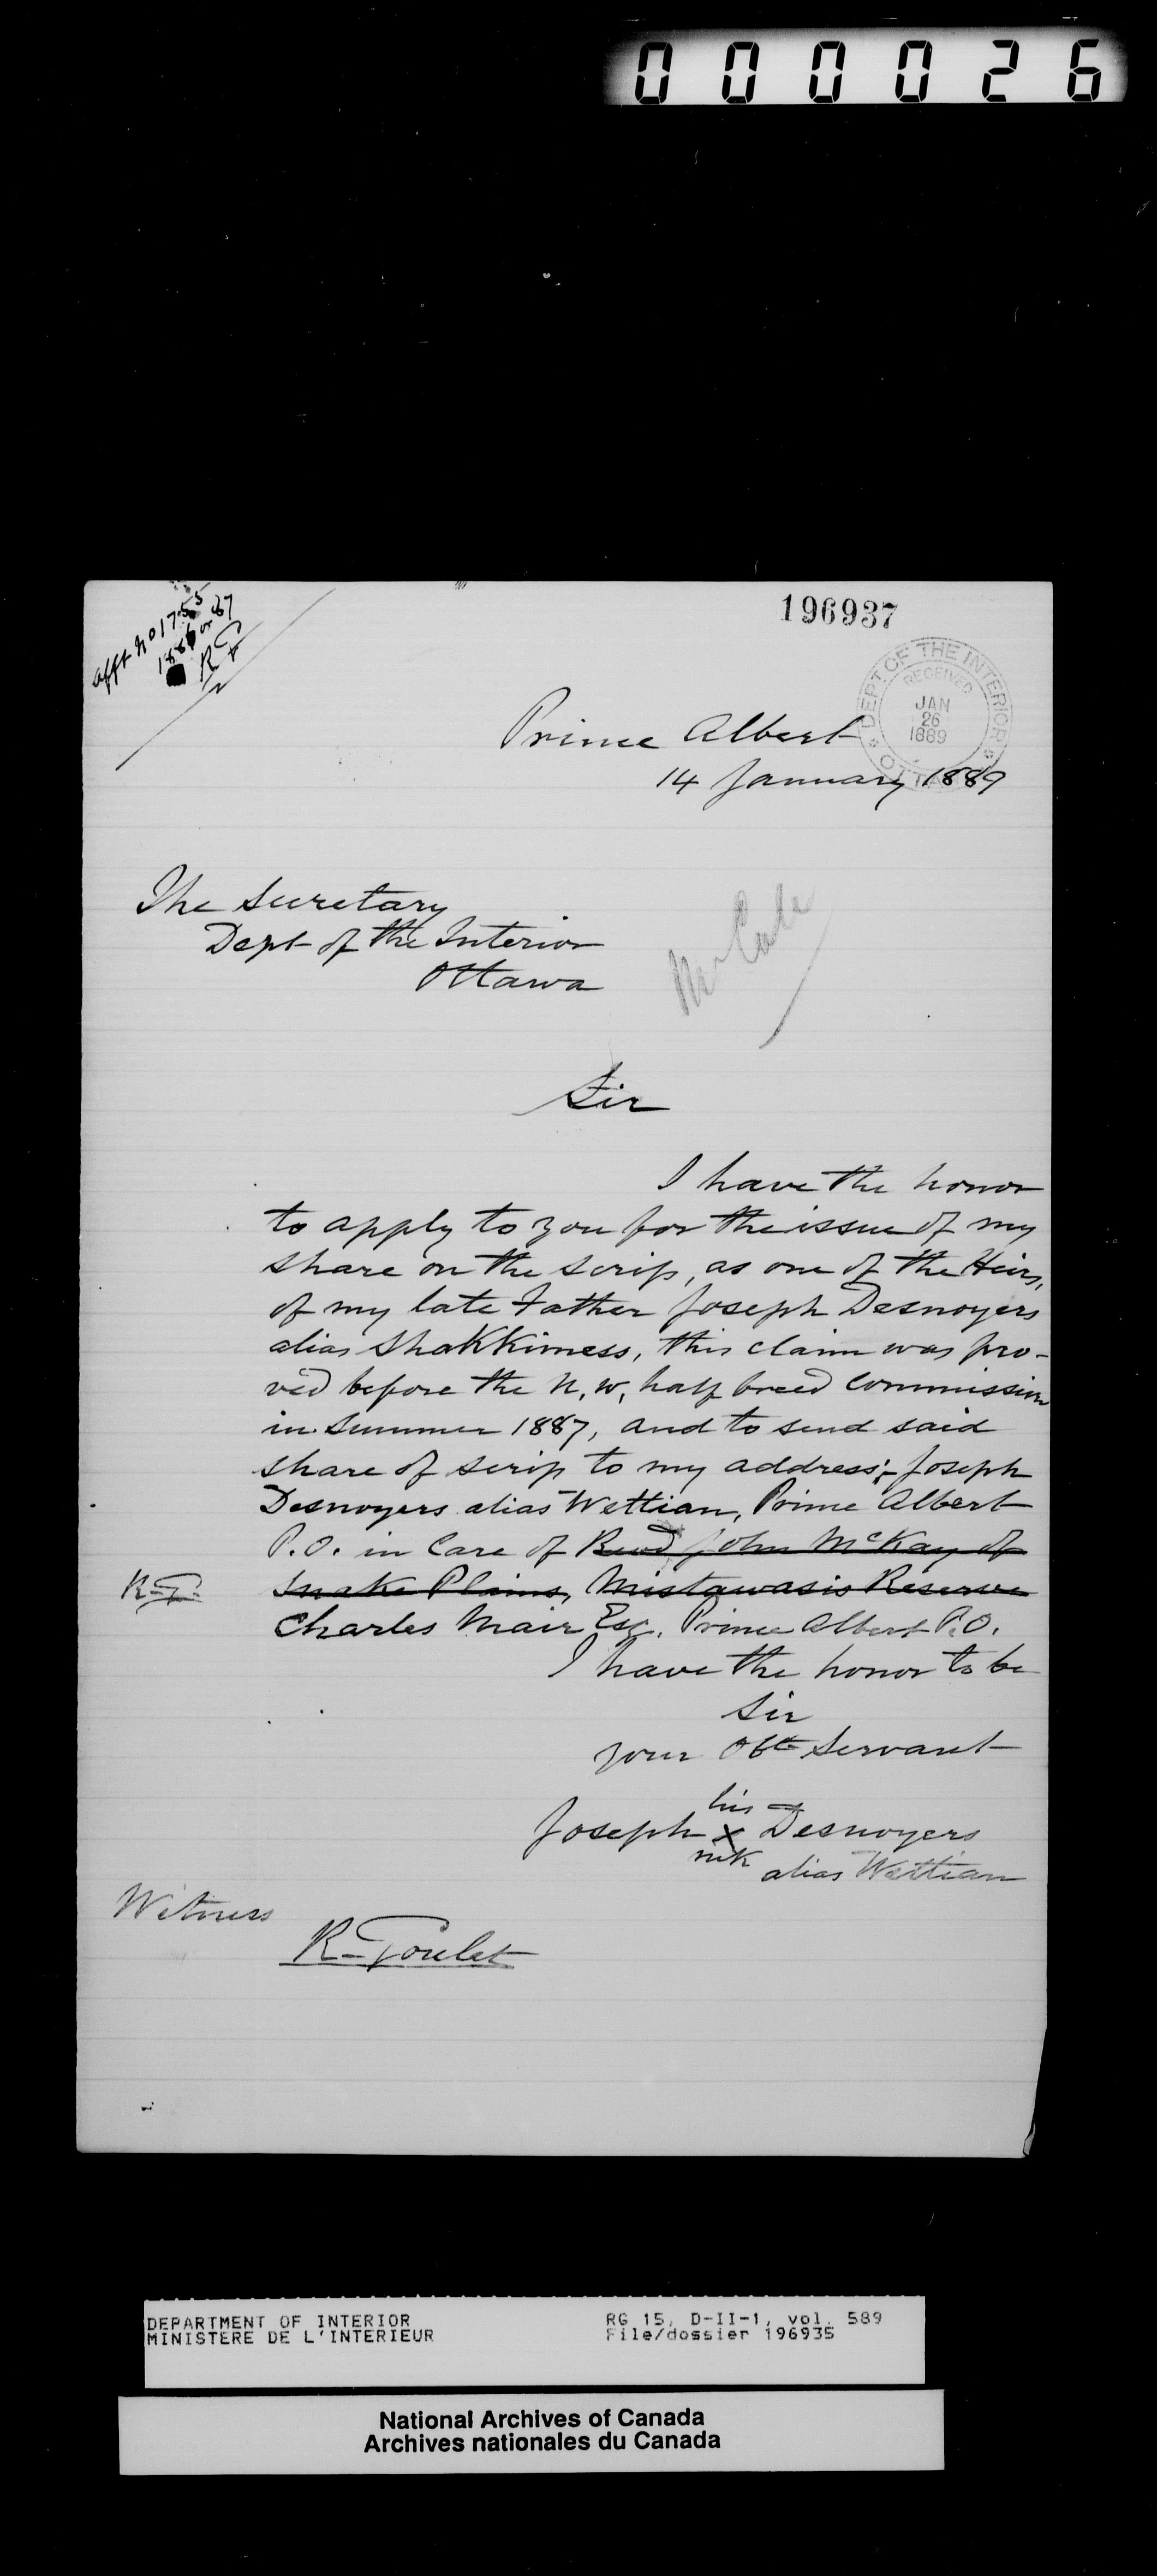 000026
afft no 1755
1886 or 87
RG
196937
DEPT. OF THE INTERIOR
RECEIVED
JAN
26
1889
OTTAWA
Prince Albert
14 January 1889
The Secretary
Dept of the Interior
Ottawa
Mr
Sir
I have the honor
to apply to you for the issue of my
share on the scrip, as one of the Heirs,
of my late Father Joseph Desnoyers
alias Shakkimess, this claim was pro-
ved before the N,W, half breed Commission
in Summer 1887, and to send said
share of scrip to my address;- Joseph
Desnoyers alias Wettian, Prince Albert
P.O. in Care of Revd John McKay of
R-G. Snake Plains, Mistawasis Reserve
Charles Mair Esq. Prince Albert P.O.
I have the honor to be
Sir
your Obt Servant
his
Joseph X Desnoyers
mk alias Wettian
Witness
R-Goulet
DEPARTMENT OF INTERIOR RG 15, D-II-1, vol. 589
MINISTERE DE L'INTERIEUR File/dossier 196935
National Archives of Canada
Archives nationales du Canada